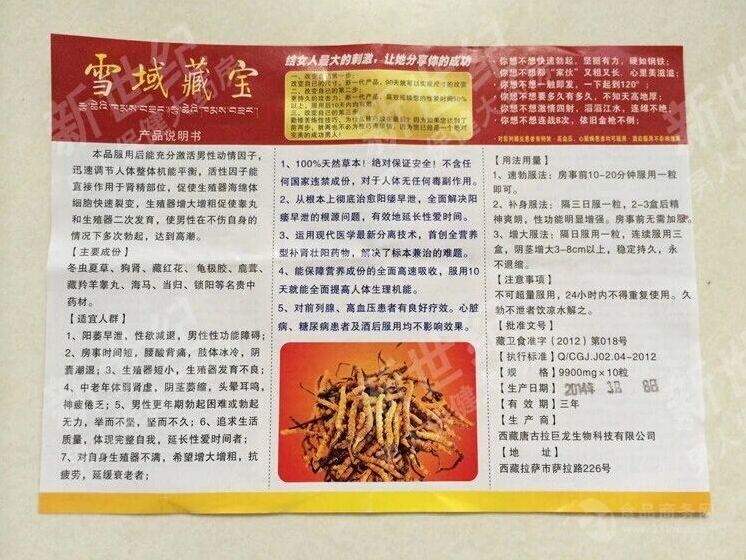 雪域藏宝
产品说明书
给女人最大的刺激，让她分享你的成功
一、改变自己的第一步
改变自己的尺寸，新一代产品，90天就可以实现尺寸的改变
二、改变自己的第二步：
三、改变自己的第三步
你想不想快速勃起，坚挺有力，硬如钢铁；
你想不想那“家伙”又粗又长，心里美滋滋；
你想不想一触即发，一下起到120°；
你想不想要多久有多久，不知天高地厚；
你想不想激情四射，滔滔江水，连绵不绝；
你想不想连战8次，依旧金枪不倒；
本品服用后能充分激活男性动情因子，
迅速调节人体整体机能平衡，活性因子能
直接作用于肾精部位，促使生殖器海绵体
细胞快速裂变，生殖器增大增粗促使睾丸
和生殖器二次发育，使男性在不伤自身的
情况下多次勃起，达到高潮。
【主要成份】
冬虫夏草、狗肾、藏红花、龟极胶、鹿茸、
藏羚羊睾丸、海马、当归、锁阳等名贵中
药材。
【适宜人群】
1、阳萎早泄，性欲减退，男性性功能障碍；
2、房事时间短，腰酸背痛，肢体冰冷，阴
囊潮湿；3、生殖器短小，生殖器发育不良；
4、中老年体弱肾虚，阴茎萎缩，头晕耳鸣，
神疲倦乏；5、男性更年期勃起困难或勃起
无力，举而不坚，坚而不久；6、追求生活
质量，体现完整自我，延长性爱时间者；
7、对自身生殖器不满，希望增大增粗，抗
疲劳，延缓衰老者；
1、100%天然草本！绝对保证安全！不含任
何国家违禁成份，对于人体无任何毒副作用。
2、从根本上彻底治愈阳痿早泄，全面解决阳
痿早泄的根源问题，有效地延长性爱时间。
3、运用现代医学最新分离技术，首创全营养
型补肾壮阳药物，解决了标本兼治的难题。
4、能保障营养成份的全面高速吸收，服用10
天就能全面提高人体生理机能。
5、对前列腺、高血压患者有良好疗效。心脏
病、糖尿病患者及酒后服用均不影响效果。
【用法用量】
1、速勃服法：房事前10-20分钟服用一粒
即可。
2、补身服法：隔三日服一粒，2-3盒后精
神爽朗，性功能明显增强。房事前无需加服。
3、增大服法：隔日服用一粒，连续服用三
盒，阴茎增大3-8cm以上，稳定持久，永
不退缩。
【注意事项】
不可超量服用，24小时内不得重复使用。久
勃不泄者饮凉水解之。
【批准文号】
藏卫食准字（2012）第018号
【执行标准】Q/CGJ.J02.04-2012
【规格】9900mg×10粒
【生产日期】2014年3月8日
【有效期】三年
【生产商】
西藏唐古拉巨龙生物科技有限公司
【地址】
西藏拉萨市萨拉路226号